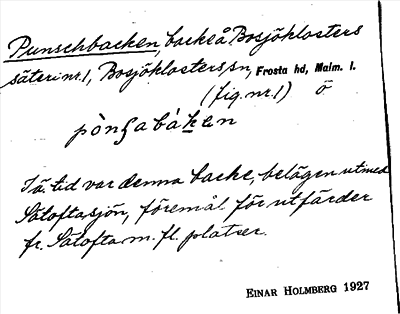 Punschbacken, backe å Bosjöklosters
säteri nr. 1, Bosjöklosters sn, Frosta hd, Malm. l.
(fig. nr. 1) ö
pònʃabáken
I ä. tid var denna backe, belägen utmed
Sätoftasjön, föremål för utfärder
fr. Sätofta m. fl. platser.
EINAR HOLMBERG 1927